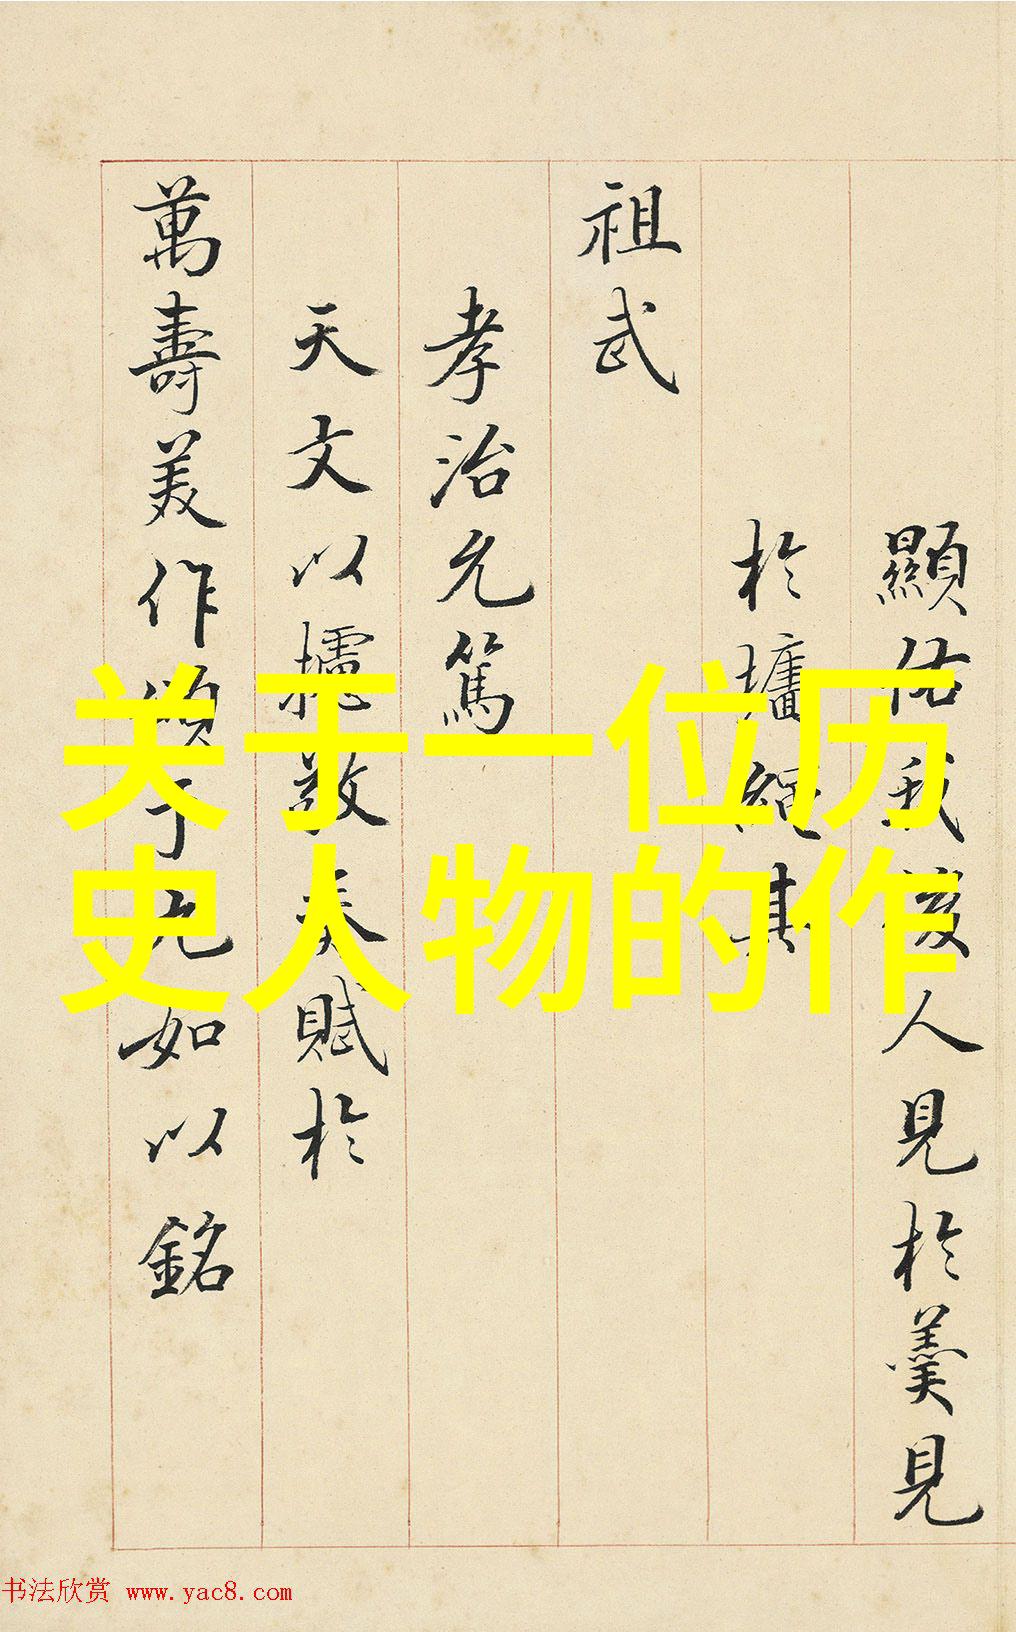 关于一位历
史人物的作
顯佑我後人見於羹見
於墻繩其
祖武
孝治允篤
天文以攄奏賦於
萬壽美作頌于允如以銘
书法欣赏 www.yac8.com